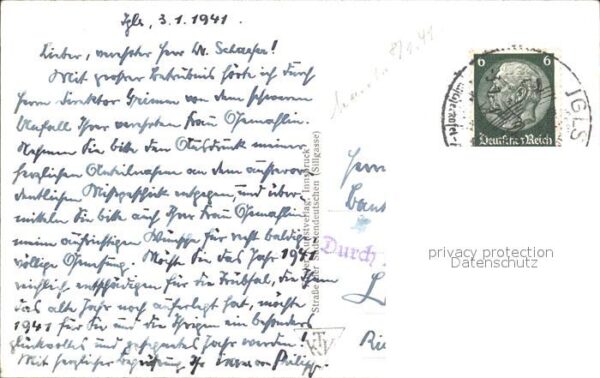 Igls, 3.1.1941.
Lieber, verehrter Herr Dr. Schaefer!
Mit großer Betrübnis hörte ich durch
Herrn Direktor Griemm von dem schweren
Unfall Ihrer verehrten Frau Gemahlin.
Nehmen Sie bitte den Ausdruck meiner
herzlichen Anteilnahme an dem außeror-
dentlichen Mißgeschick entgegen, und über-
mitteln Sie bitte auch Ihrer Frau Gemahlin
meine aufrichtigen Wünsche für recht baldige
völlige Genesung. Möchte Sie das Jahr 1941
reichlich entschädigen für die Trübsal, die Ihnen
das alte Jahr noch auferlegt hat, möchte
1941 für Sie und die Ihrigen ein besonders
glückvolles und gesegnetes Jahr werden!
Mit herzlicher Begrüßung Ihr Philipp
8/1.41
Kunstverlag, Innsbruck
Straße der Sudetendeutschen (Sillgasse)
Durch
6 6
Deutsches Reich
IGLS
privacy protection
Datenschutz